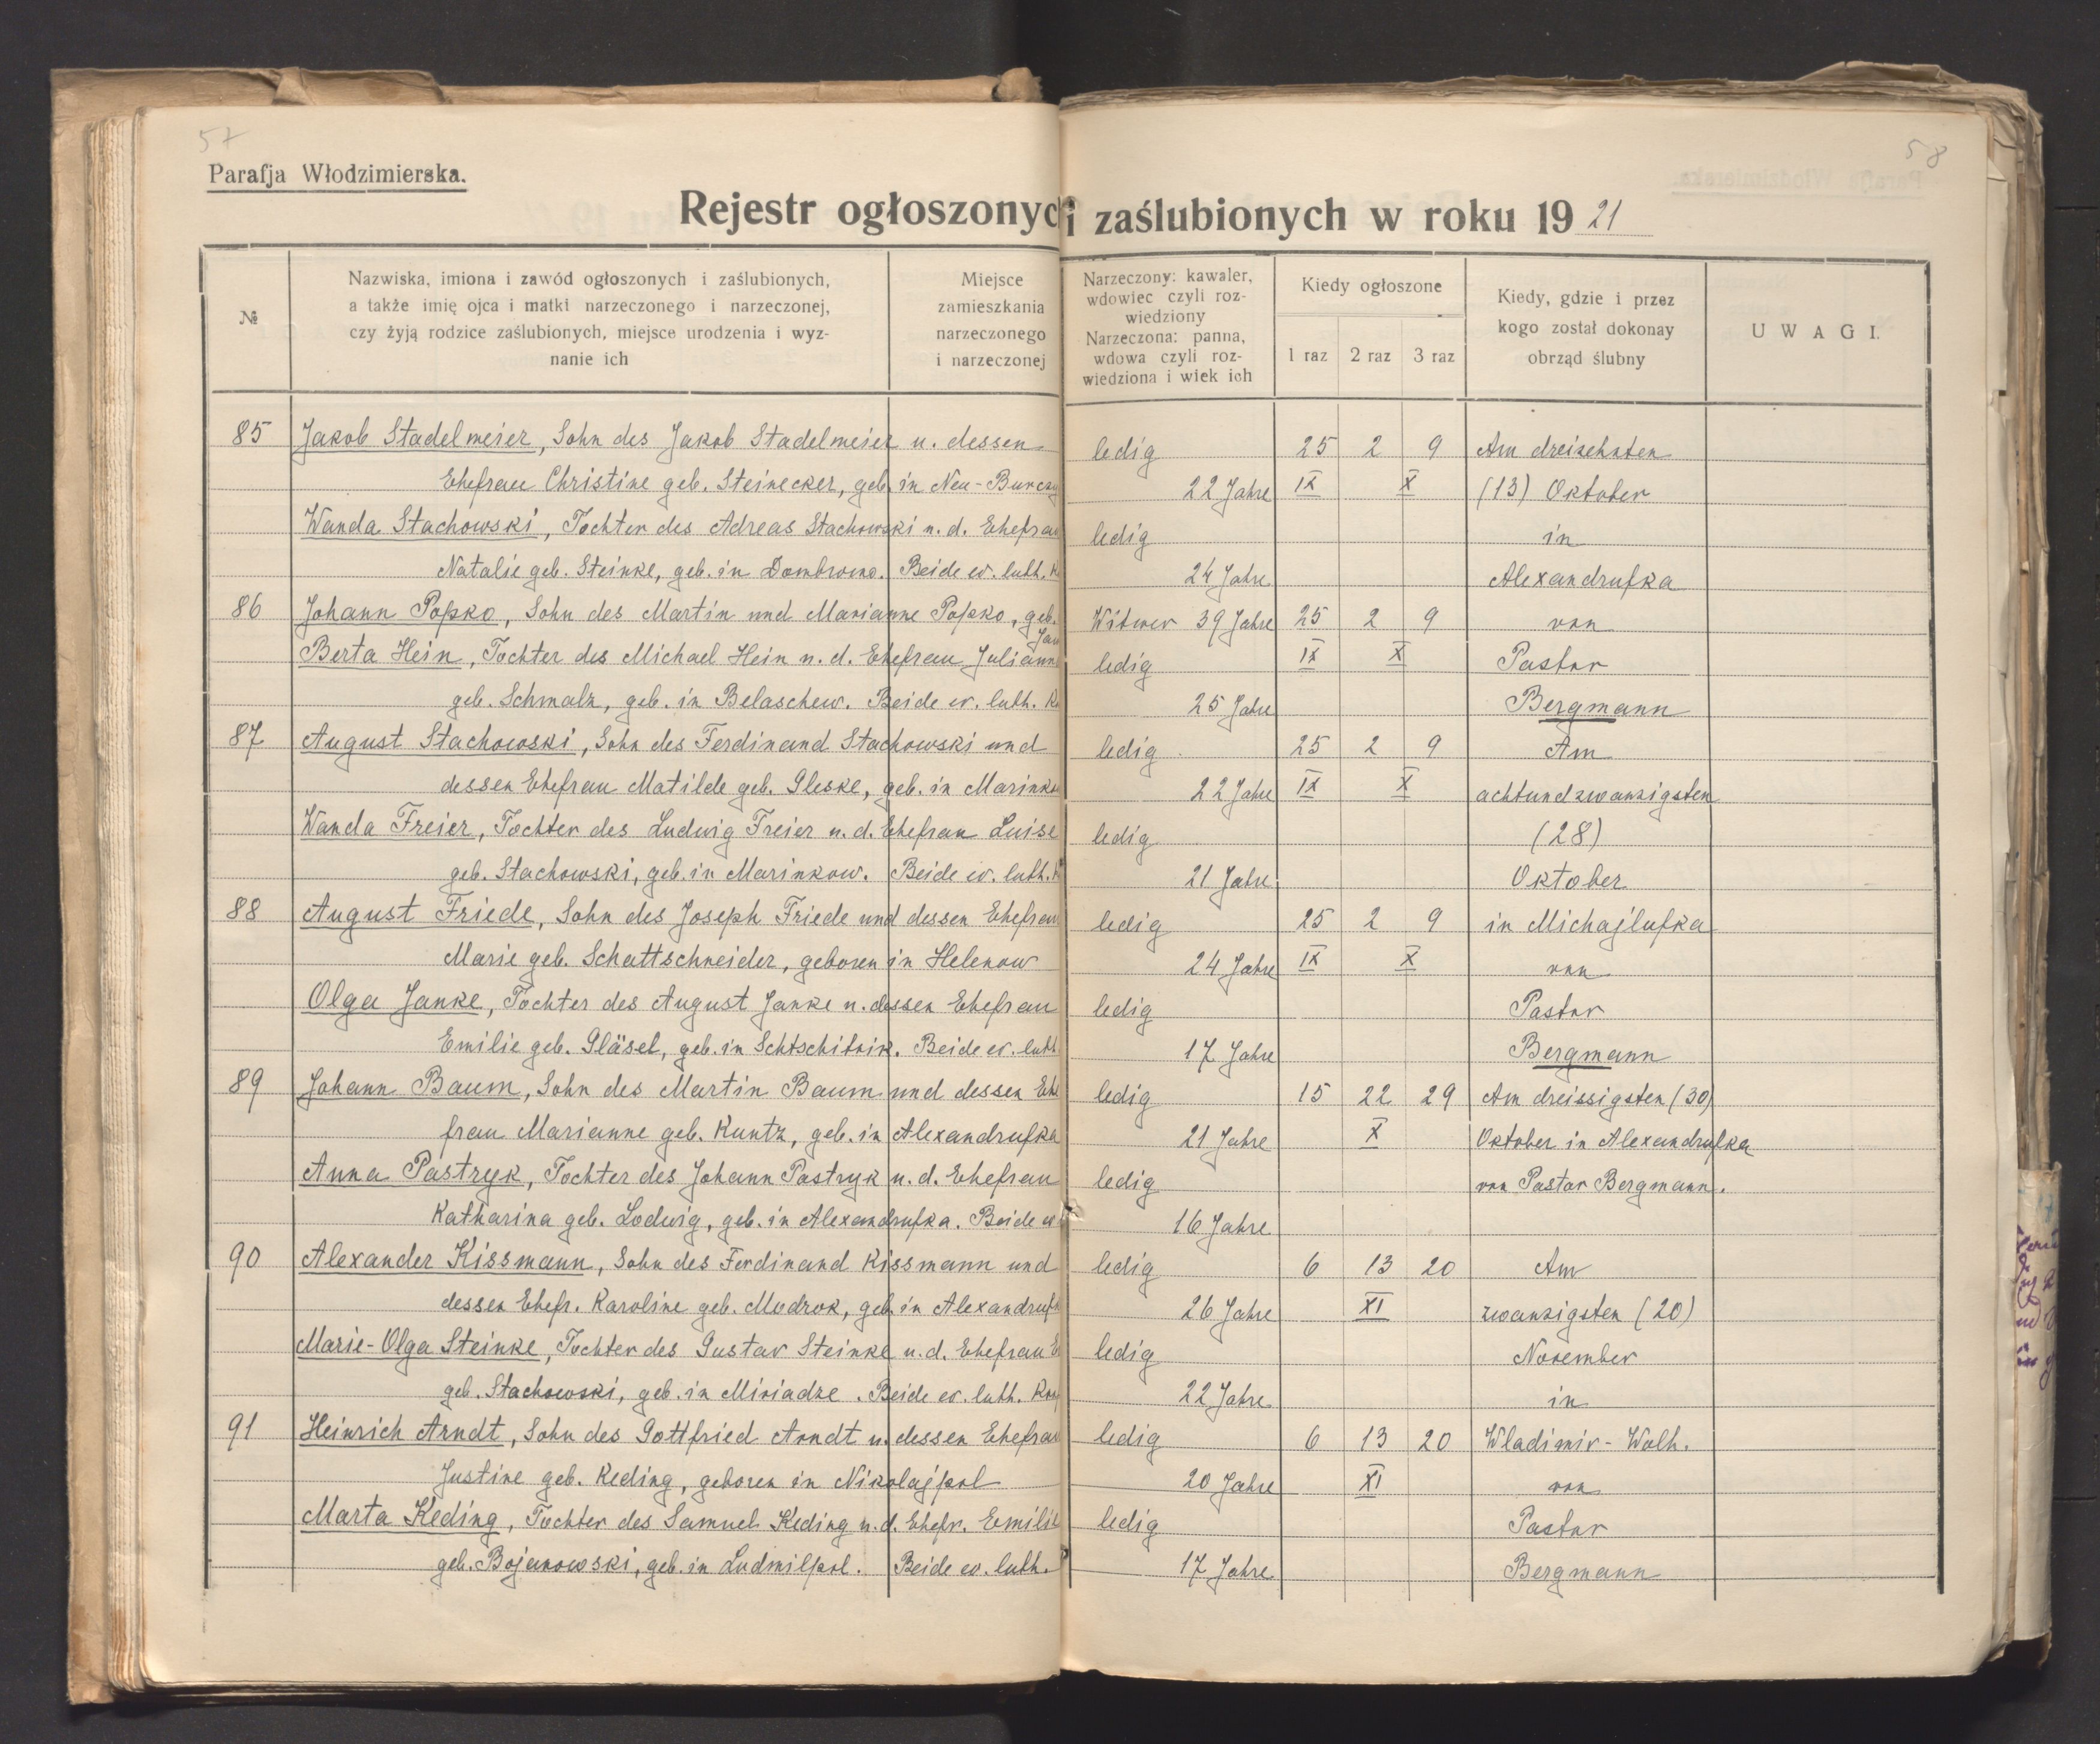 57
Parafja Włodzimierska.
Rejestr ogłoszonyc
№
Nazwiska, imiona i zawód ogłoszonych i zaślubionych,
a także imię ojca i matki narzeczonego i narzeczonej,
czy żyją rodzice zaślubionych, miejsce urodzenia i wyz-
nanie ich
Miejsce
zamieszkania
narzeczonego
i narzeczonej
85 Jakob Stadelmeier, Sohn des Jakob Stadelmeier u. dessen
Ehefrau Christine geb. Steinecker, geb. in Neu-Burczy
Wanda Stachowski, Tochter des Adreas Stachowski u. d. Ehefrau
Natalie geb. Steinke, geb. in Dombrowo. Beide ev. luth. K
86 Johann Popko, Sohn des Martin und Marianne Popko, geb.
Jan
Berta Hein, Tochter des Michael Hein u. d. Ehefrau Julianne
geb. Schmalz, geb. in Belaschew. Beide ev. luth. K
87 August Stachowski, Sohn des Ferdinand Stachowski und
dessen Ehefrau Matilde geb. Gleske, geb. in Marinko
Wanda Freier, Tochter des Ludwig Freier u. d. Ehefrau Luise
geb. Stachowski, geb. in Marinkow. Beide ev. luth. K
88 August Friede, Sohn des Joseph Friede und dessen Ehefrau
Marie geb. Schattschneider, geboren in Helenow
Olga Janke, Tochter des August Janke u. dessen Ehefrau
Emilie geb. Gläsel, geb. in Schtschitnik. Beide ev. luth
89 Johann Baum, Sohn des Martin Baum und dessen Ehe
frau Marianne geb. Kuntz, geb. in Alexandrufka
Anna Pastryk, Tochter des Johann Pastryk u. d. Ehefrau
Katharina geb. Lodwig, geb. in Alexandrufka. Beide ev
90 Alexander Kissmann, Sohn des Ferdinand Kissmann und
dessen Ehefr. Karoline geb. Modrok, geb. in Alexandrufk
Marie-Olga Steinke, Tochter des Gustav Steinke u. d. Ehefrau E
geb. Stachowski, geb. in Miriadze. Beide ev. luth. Kon
91 Heinrich Arndt, Sohn des Gottfried Arndt u. dessen Ehefrau
Justine geb. Keding, geboren in Nikolajpol
Marta Keding, Tochter des Samuel Keding u. d. Ehefr. Emilie
geb. Bojanowski, geb. in Ludmilpol. Beide ev. luth.
58
i zaślubionych w roku 1921
Narzeczony: kawaler,
wdowiec czyli roz-
wiedziony
Narzeczona: panna,
wdowa czyli roz-
wiedziona i wiek ich
Kiedy ogłoszone
1 raz 2 raz 3 raz
Kiedy, gdzie i przez
kogo został dokonay
obrząd ślubny
UWAGI.
ledig 25 2 9 Am dreizehnten
22 Jahre IX X (13) Oktober
ledig in
24 Jahre Alexandrufka
Witwer 39 Jahre 25 2 9 von
ledig IX X Pastor
25 Jahre Bergmann
ledig 25 2 9 Am
22 Jahre IX X achtundzwanzigsten
ledig (28)
21 Jahre Oktober
ledig 25 2 9 in Michajlufka
24 Jahre IX X von
ledig Pastor
17 Jahre Bergmann
ledig 15 22 29 Am dreissigsten (30)
21 Jahre X Oktober in Alexandrufka
ledig von Pastor Bergmann.
16 Jahre
ledig 6 13 20 Am
26 Jahre XI zwanzigsten (20)
ledig November
22 Jahre in
ledig 6 13 20 Wladimir-Wolh.
20 Jahre XI von
ledig Pastor
17 Jahre Bergmann